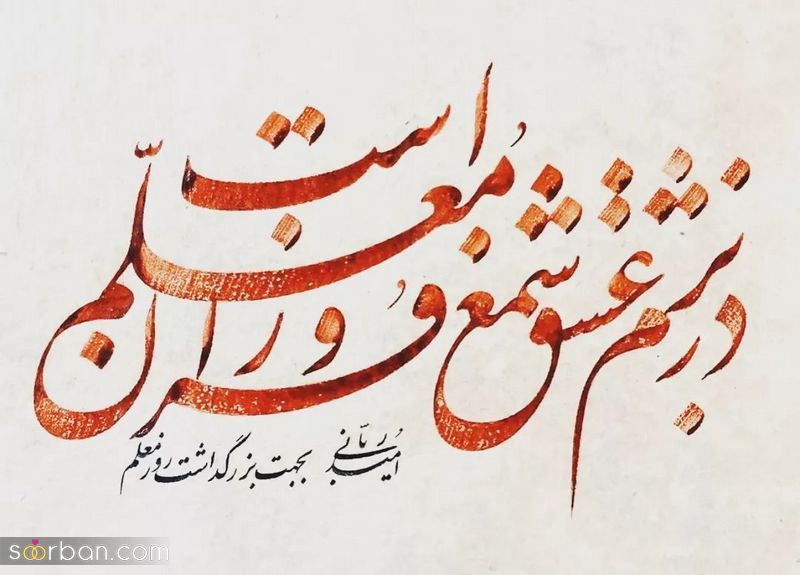 در بزم عشق شمع فروزان معلّم است
امید ربّانی بجهت بزرگداشت روز معلم
soorban.com